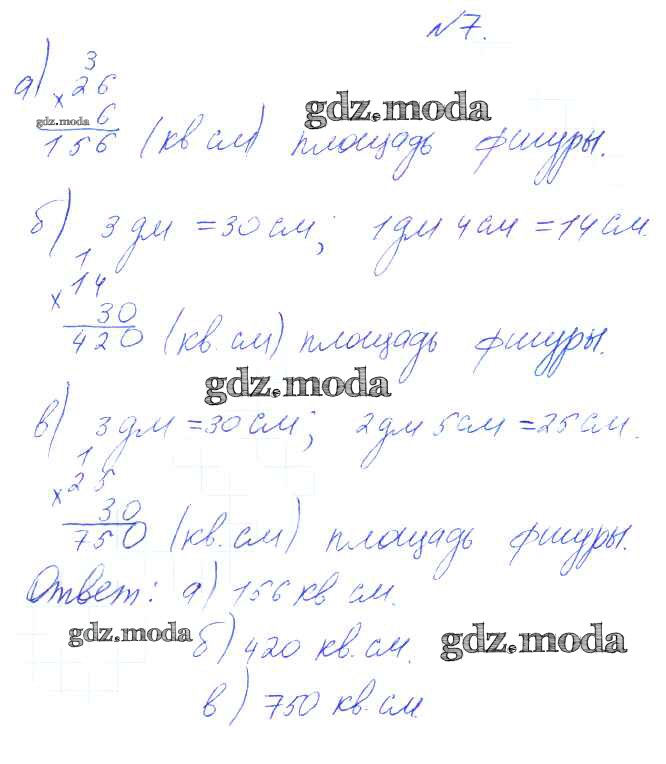 №7.
3
а) × 26
gdz.moda 6 gdz.moda
156 (кв см) площадь фигуры.
б) 3 дм = 30 см; 1 дм 4 см = 14 см.
1
× 14
30
420 (кв. см) площадь фигуры.
gdz.moda
в) 3 дм = 30 см; 2 дм 5 см = 25 см.
1
× 25
30
750 (кв. см) площадь фигуры.
Ответ: а) 156 кв см.
gdz.moda б) 420 кв. см. gdz.moda
в) 750 кв. см